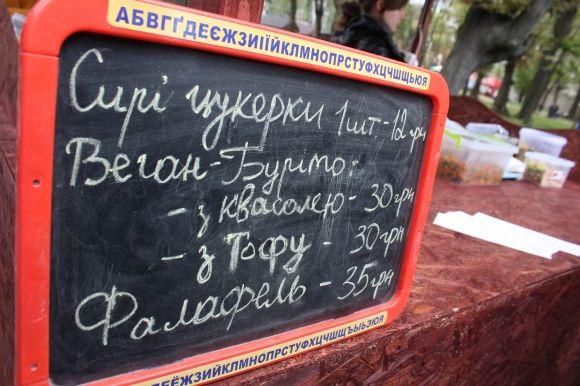 АБВГҐДЕЄЖЗИІЇЙКЛМНОПРСТУФХЦЧШЩЬЮЯ
Сирі цукерки 1шт.-12 грн
Веган-Буріто:
- з квасолею - 30 грн
- з Тофу - 30 грн
Фалафель - 35 грн
ДЕЁЖЗИЙКЛМНОПРСТУФХЦЧШЩЪЫЬЭЮЯ